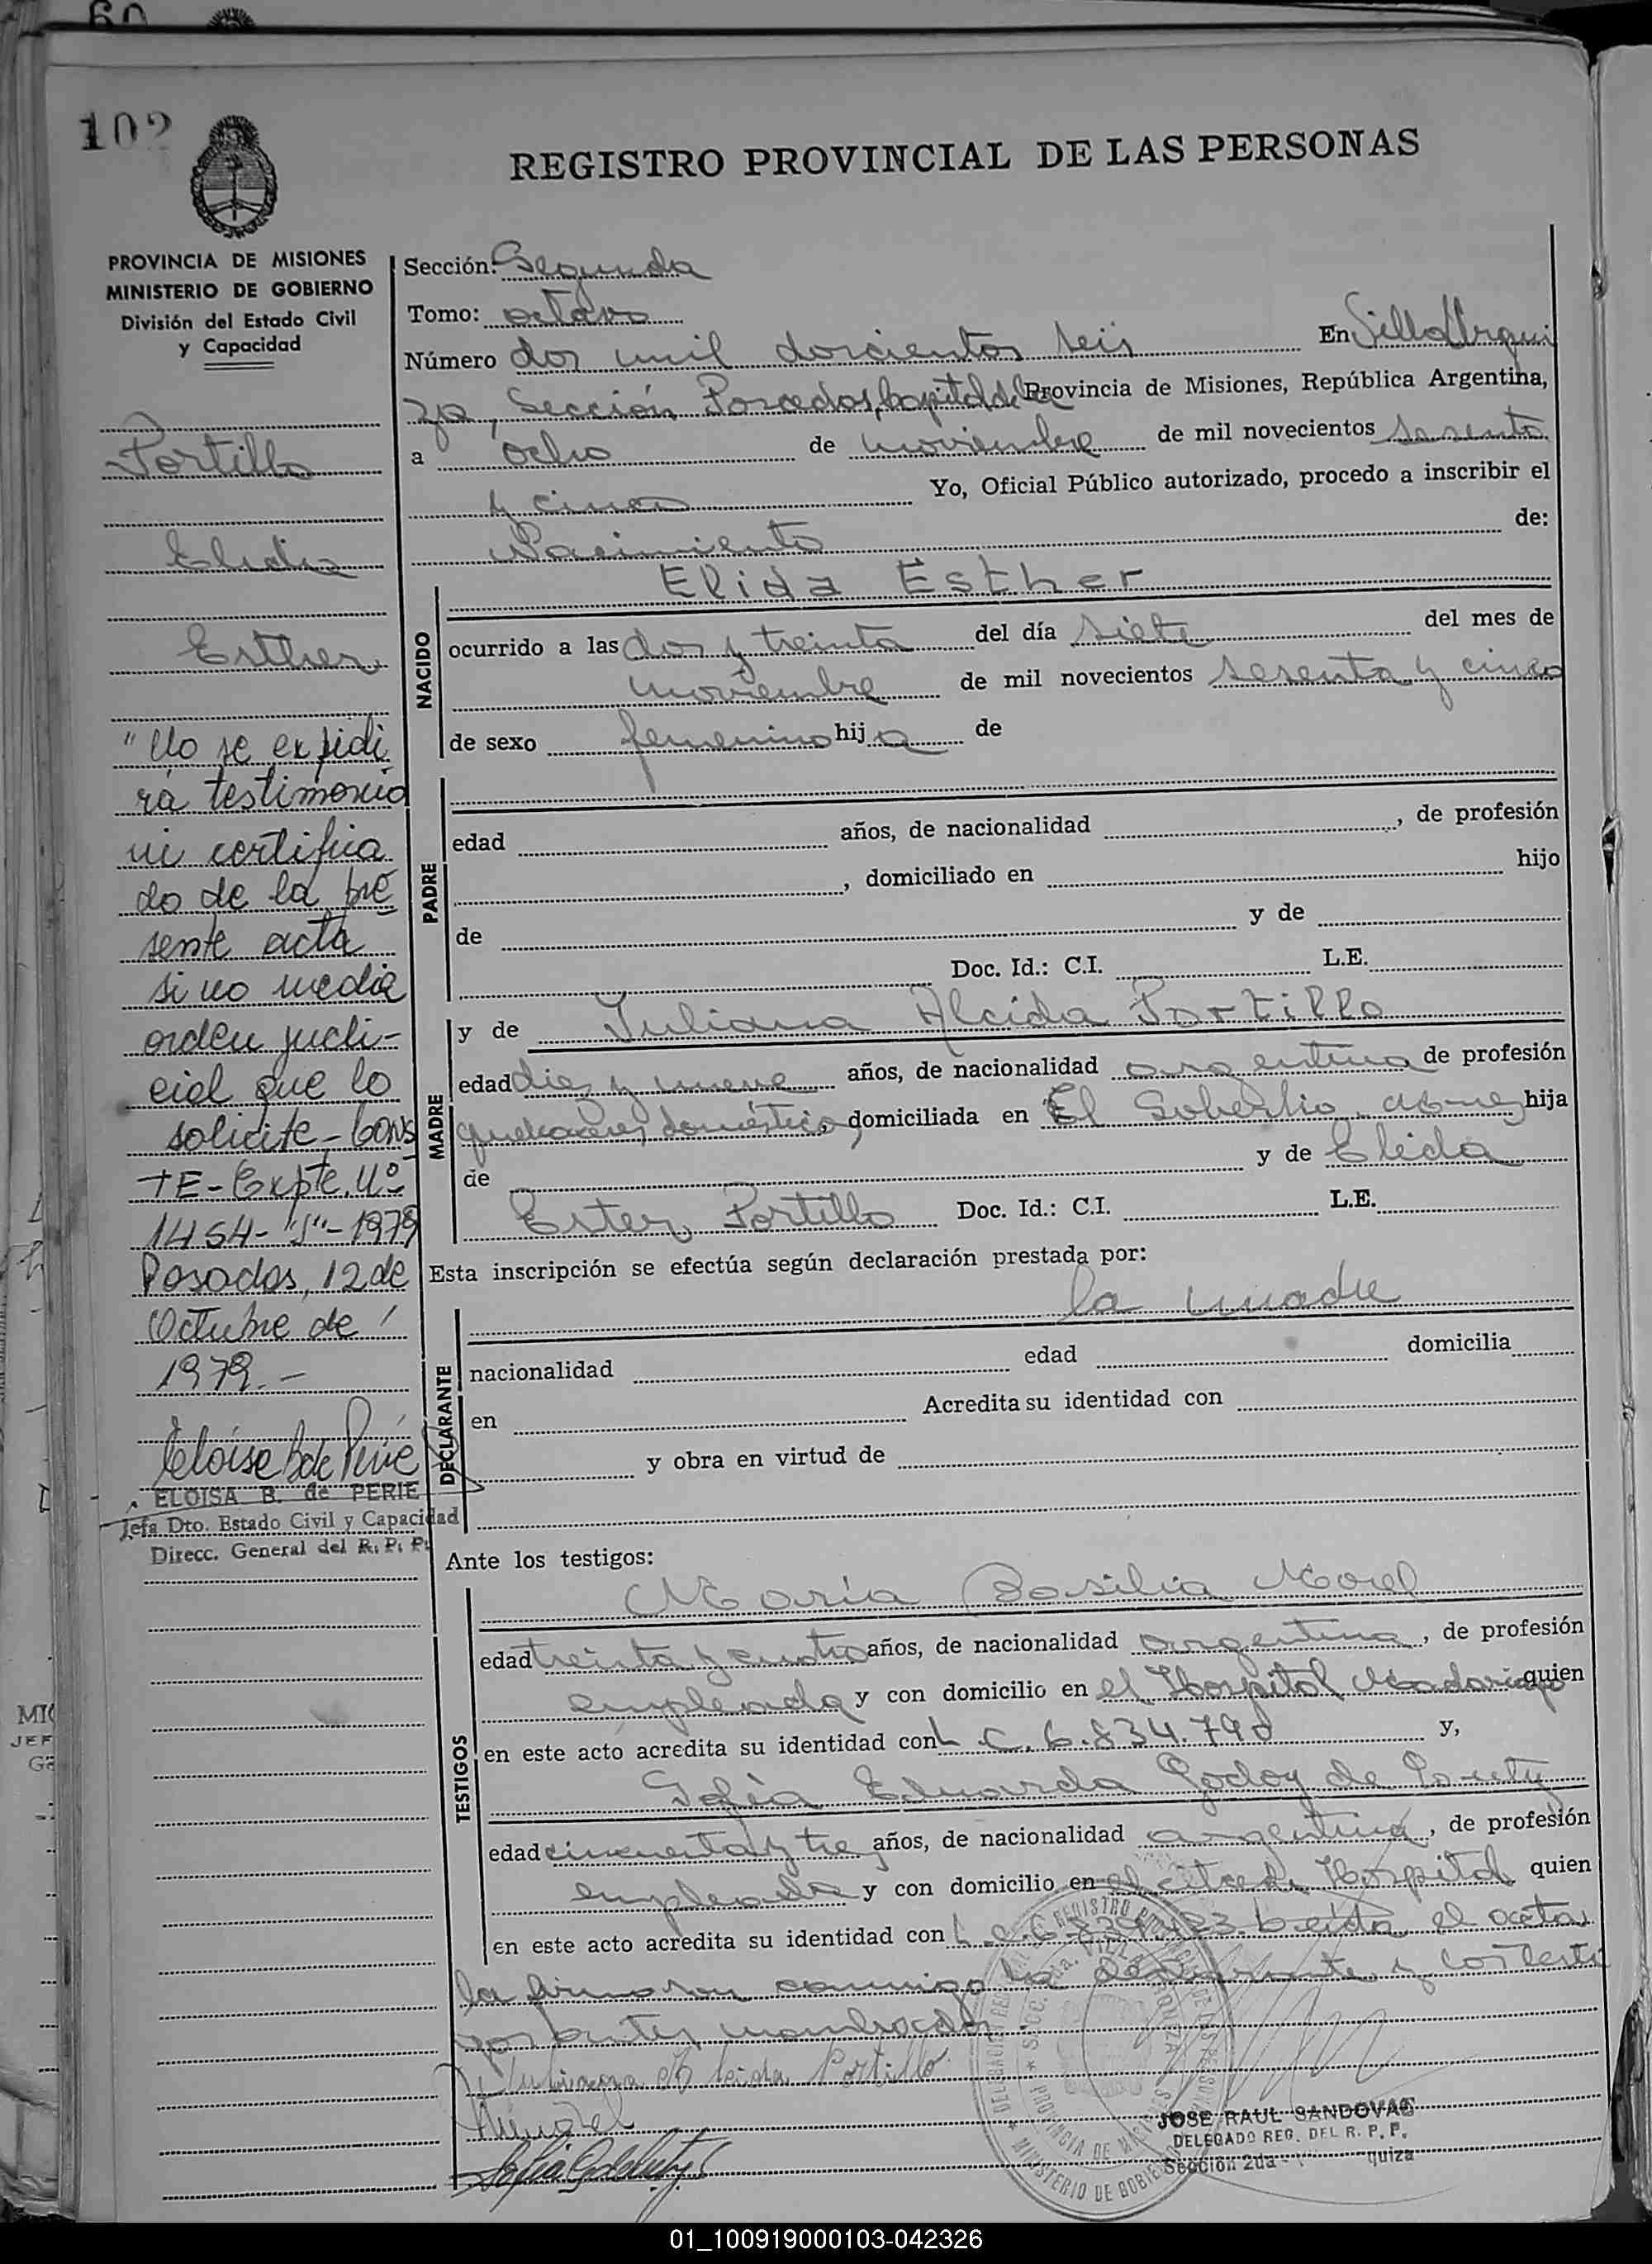 102
REGISTRO PROVINCIAL DE LAS PERSONAS
PROVINCIA DE MISIONES
MINISTERIO DE GOBIERNO
División del Estado Civil
y Capacidad
Portillo
Elidia
Esther
"No se expedi
rá testimonio
ni certifica
do de la pre
sente acta
si no media
orden judi-
cial que lo
solicite - Cons
TE - Expte. Nº
1454- "S"- 1979
Posadas, 12 de
Octubre de
1979.-
Eloisa B de Perie
ELOISA B. de PERIE
Jefa Dto. Estado Civil y Capacidad
Direcc. General del R. P. P.
Sección: Segunda
Tomo: octavo
Número dos mil doscientos seis En Villa Urqui
za, Sección Posadas, Capital de la Provincia de Misiones, República Argentina,
a ocho de noviembre de mil novecientos sesenta
y cinco Yo, Oficial Público autorizado, procedo a inscribir el
Nacimiento de:
NACIDO
Elida Esther
ocurrido a las dos y treinta del día siete del mes de
noviembre de mil novecientos sesenta y cinco
de sexo femenino hija de
PADRE
edad años, de nacionalidad , de profesión
, domiciliado en hijo
de y de
Doc. Id.: C.I. L.E.
MADRE
y de Juliana Alcida Portillo
edad diez y nueve años, de nacionalidad argentina de profesión
quehaceres domésticos, domiciliada en El Soberbio hija
de y de Elida
Ester Portillo Doc. Id.: C.I. L.E.
Esta inscripción se efectúa según declaración prestada por:
DECLARANTE
la madre
nacionalidad edad domicilia
en Acredita su identidad con
y obra en virtud de
Ante los testigos:
TESTIGOS
María Basilia Morel
edad treinta y cuatro años, de nacionalidad argentina, de profesión
empleada y con domicilio en el Hospital Madariaga quien
en este acto acredita su identidad con L C. 6.834.790 y,
Sofía Eduarda Godoy de
edad cincuenta y tres años, de nacionalidad argentina, de profesión
empleada y con domicilio en el citado Hospital quien
en este acto acredita su identidad con L.C. Leida el acta
la firmaron conmigo la declarante y los testi
gos antes nombrados.
Juliana Alcida Portillo
JOSE RAUL SANDOVAL
DELEGADO REG. DEL R. P. P.
Sección 2da quiza
01_100919000103-042326